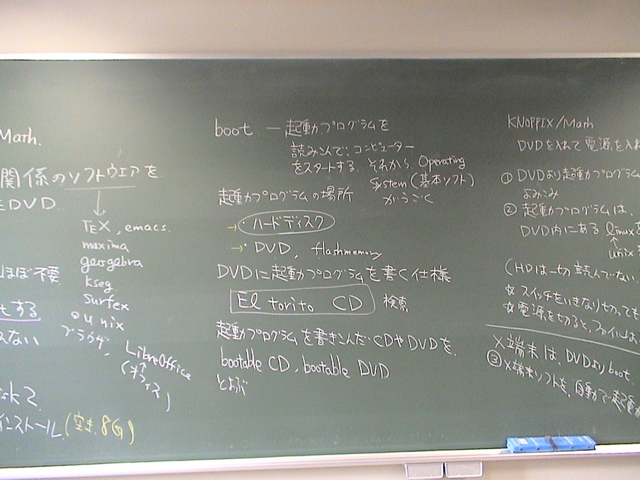 Math.
関係のソフトウェアを
DVD.
TEX, emacs.
maxima
geogebra
kseg
surfex
ou.nix
ブラウザ.
LibreOffice
ほぼ不要
する
ない
インストール (空き 8G)
boot — 起動プログラムを
読みこんで: コンピューター
をスタートする. それから Operating
System (基本ソフト)
がうごく
起動プログラムの場所
→ ハードディスク
→ DVD, flashmemory
DVDに起動プログラムを書く仕様
El torito CD 検索
起動プログラムを書きこんだCDやDVDを.
bootable CD, bootable DVD
とよぶ
KNOPPIX/Math
DVDを入れて電源を入れ
① DVDより起動プログラム
よみこみ
② 起動プログラムは,
DVD内にある linux
↑
unix
(HDは一切読んでない.
☆ スイッチをいきなり切っても
☆ 電源を切ると, ファイルは,
X端末は, DVDよりboot
③ X端末ソフトを, 自動で起動